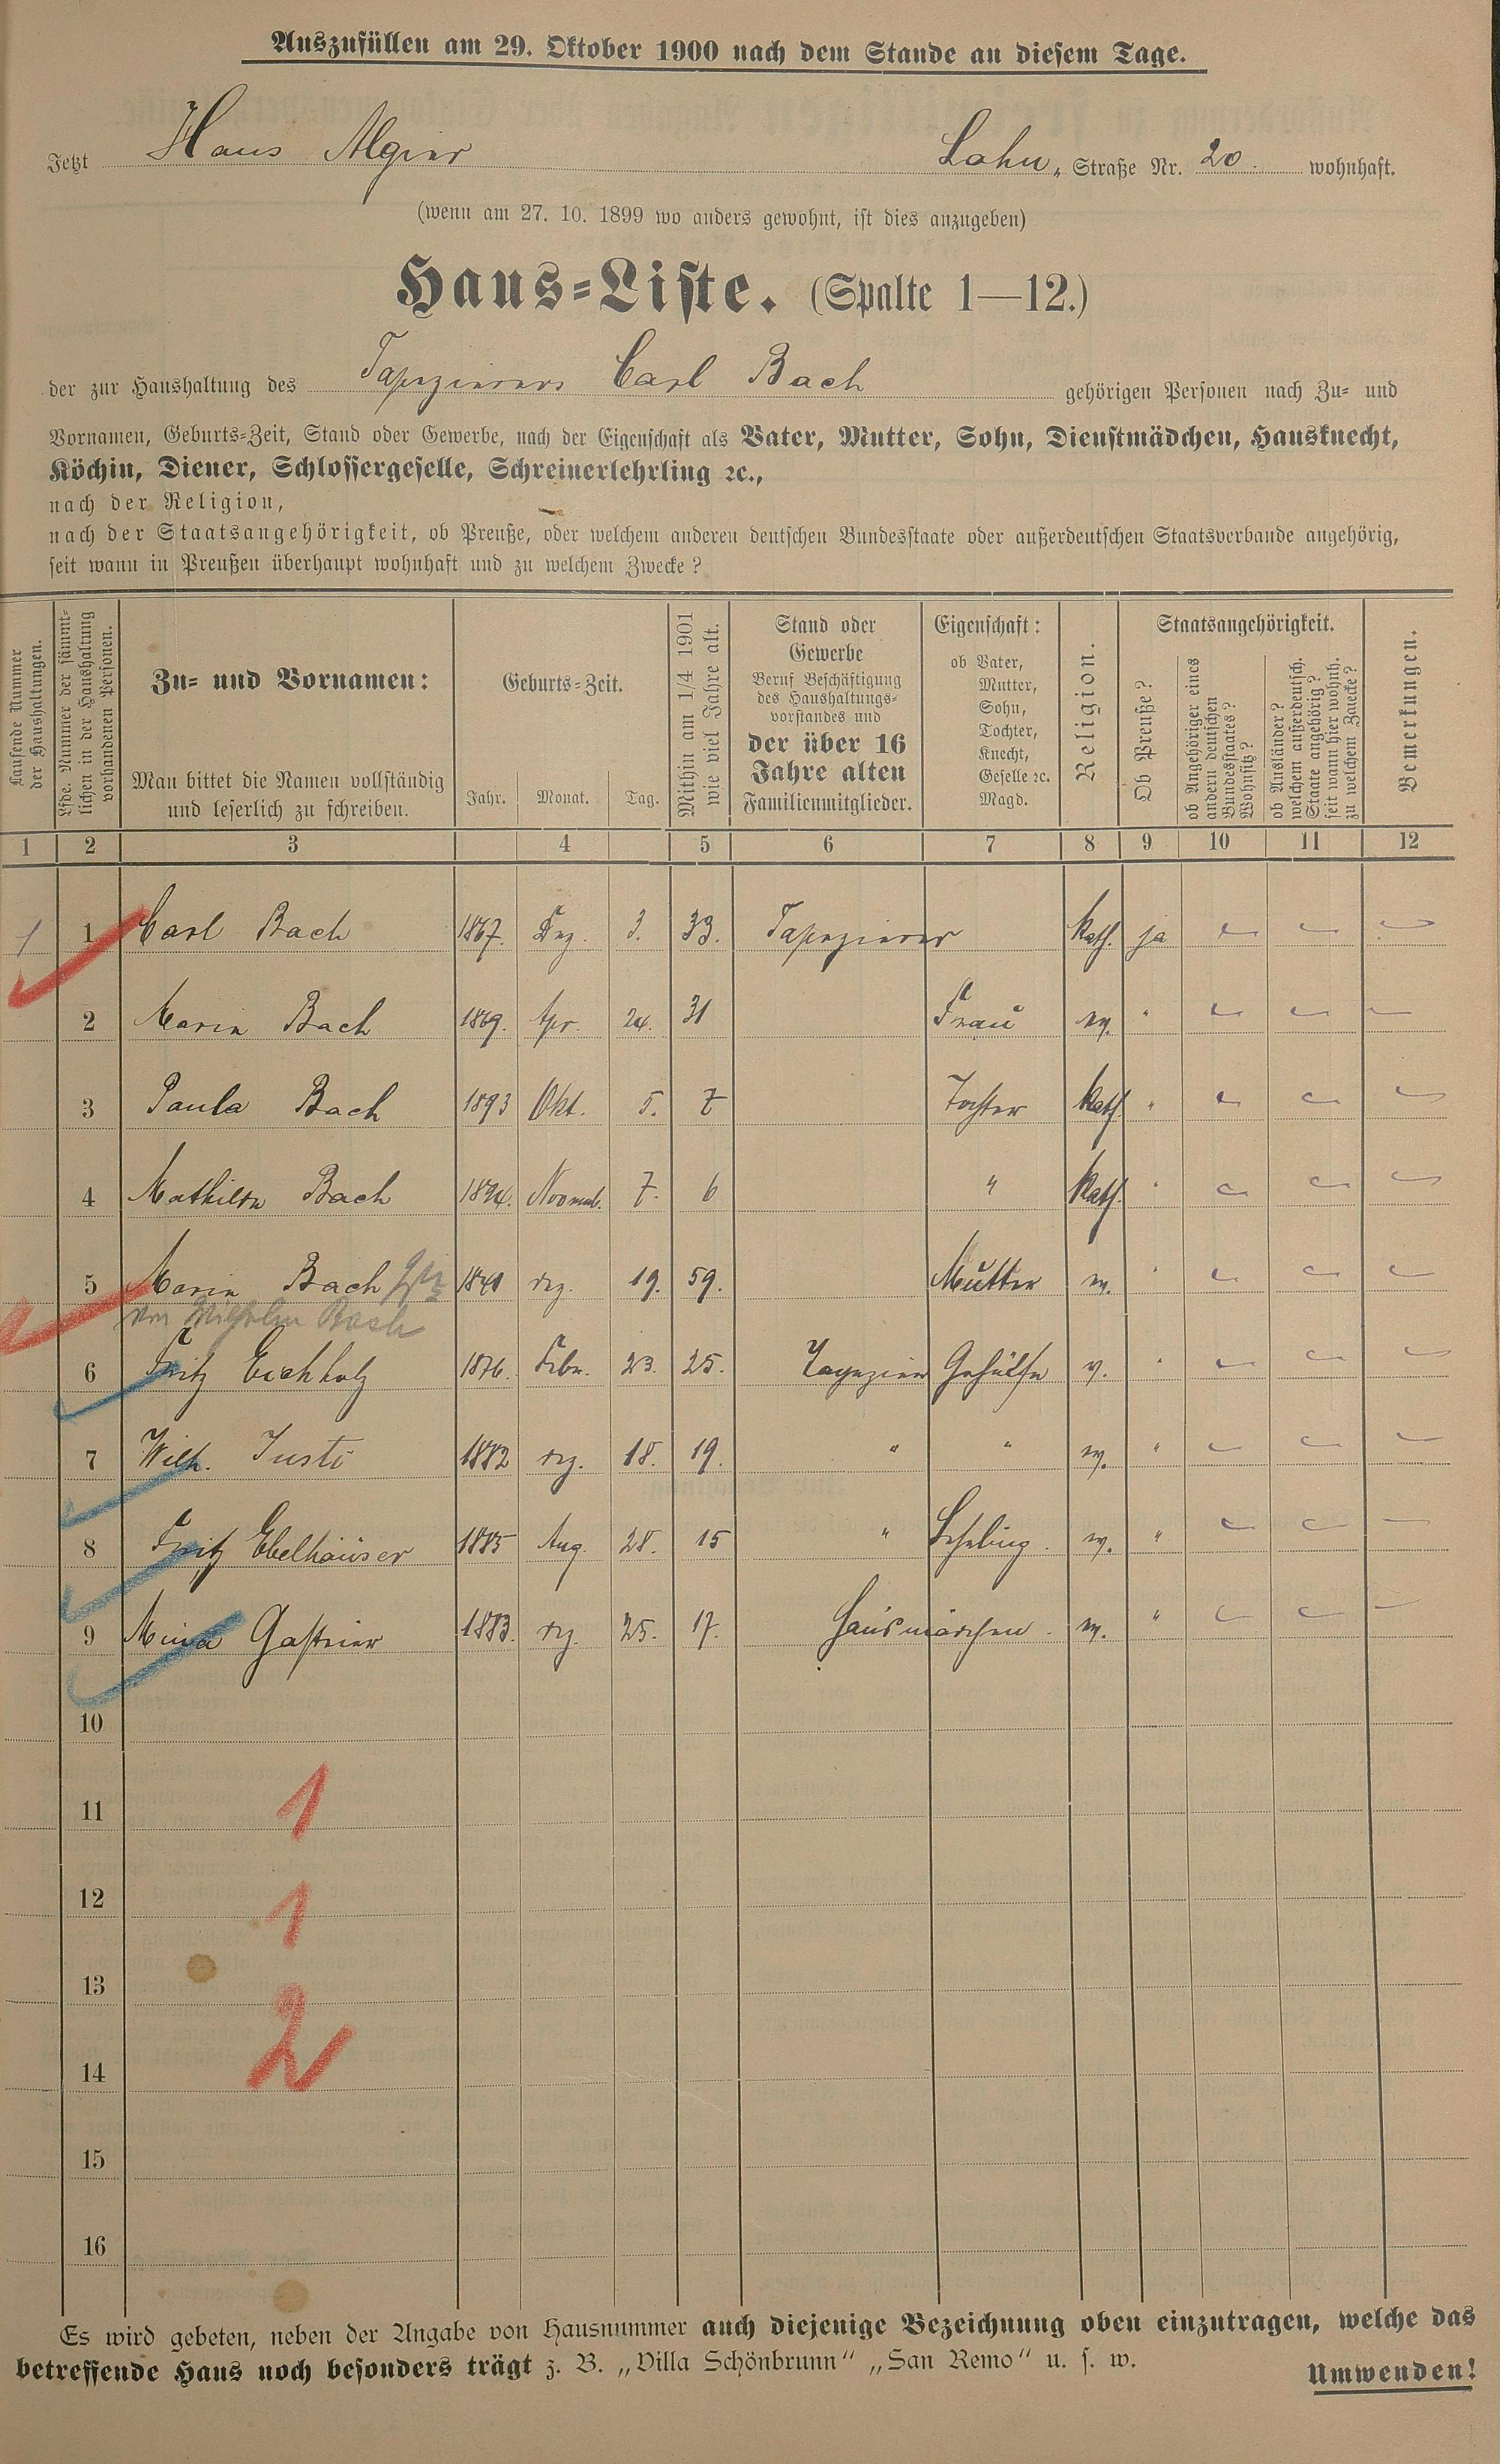 Auszufüllen am 29. Oktober 1900 nach dem Stande an diesem Tage.
Jetzt Haus Algier Lahn- Straße Nr. 20. wohnhaft.
(wenn am 27. 10. 1899 wo anders gewohnt, ist dies anzugeben)
Haus-Liste. (Spalte 1—12.)
der zur Haushaltung des Tapezierers Carl Bach gehörigen Personen nach Zu- und
Vornamen, Geburts-Zeit, Stand oder Gewerbe, nach der Eigenschaft als Vater, Mutter, Sohn, Dienstmädchen, Hausknecht,
Köchin, Diener, Schlossergeselle, Schreinerlehrling ꝛc.,
nach der Religion,
nach der Staatsangehörigkeit, ob Preuße, oder welchem anderen deutschen Bundesstaate oder außerdeutschen Staatsverbande angehörig,
seit wann in Preußen überhaupt wohnhaft und zu welchem Zwecke?
Laufende Nummer
der Haushaltungen.
Lfde. Nummer der sämmt-
lichen in der Haushaltung
vorhandenen Personen.
Zu- und Vornamen:
Man bittet die Namen vollständig
und leserlich zu schreiben.
Geburts-Zeit.
Jahr. Monat. Tag.
Mithin am 1/4 1901
wie viel Jahre alt.
Stand oder
Gewerbe
Beruf Beschäftigung
des Haushaltungs-
vorstandes und
der über 16
Jahre alten
Familienmitglieder.
Eigenschaft:
ob Vater,
Mutter,
Sohn,
Tochter,
Knecht,
Geselle ꝛc.
Magd.
Religion.
Staatsangehörigkeit.
Ob Preuße?
ob Angehöriger eines
andern deutschen
Bundesstaates?
Wohnsitz?
ob Ausländer?
welchem außerdeutsch.
Staate angehörig?
seit wann hier wohnh.
zu welchem Zwecke?
Bemerkungen.
1 2 3 4 5 6 7 8 9 10 11 12
1 1 Carl Bach 1867. Dez. 3. 33. Tapezierer Kath. ja — — —
2 Marie Bach 1869. Apr. 24. 31 Frau ev. " — — —
3 Paula Bach 1893 Okt. 5. 7 Tochter Kath. " — — —
4 Mathilde Bach 1894. Novemb. 7. 6 " Kath. " — — —
5 Marie Bach 19. 59. Mutter ev. " — — —
von Wilhelm Bach
6 Fritz Eichholz 1876. Febr. 23. 25. Tapezier Gehülfe ev. " — — —
7 Wilh. Justi 1882 18. 19. " " ev. " — — —
8 Fritz Ebelhäuser 1885 Aug. 28. 15 " Lehrling. ev. " — — —
9 Mina 1883. 25. 17. Hausmädchen. ev. " — — —
10
11 1
12 1
13
14 2
15
16
Es wird gebeten, neben der Angabe von Hausnummer auch diejenige Bezeichnung oben einzutragen, welche das
betreffende Haus noch besonders trägt z. B. „Villa Schönbrunn“ „San Remo“ u. s. w.
Umwenden!